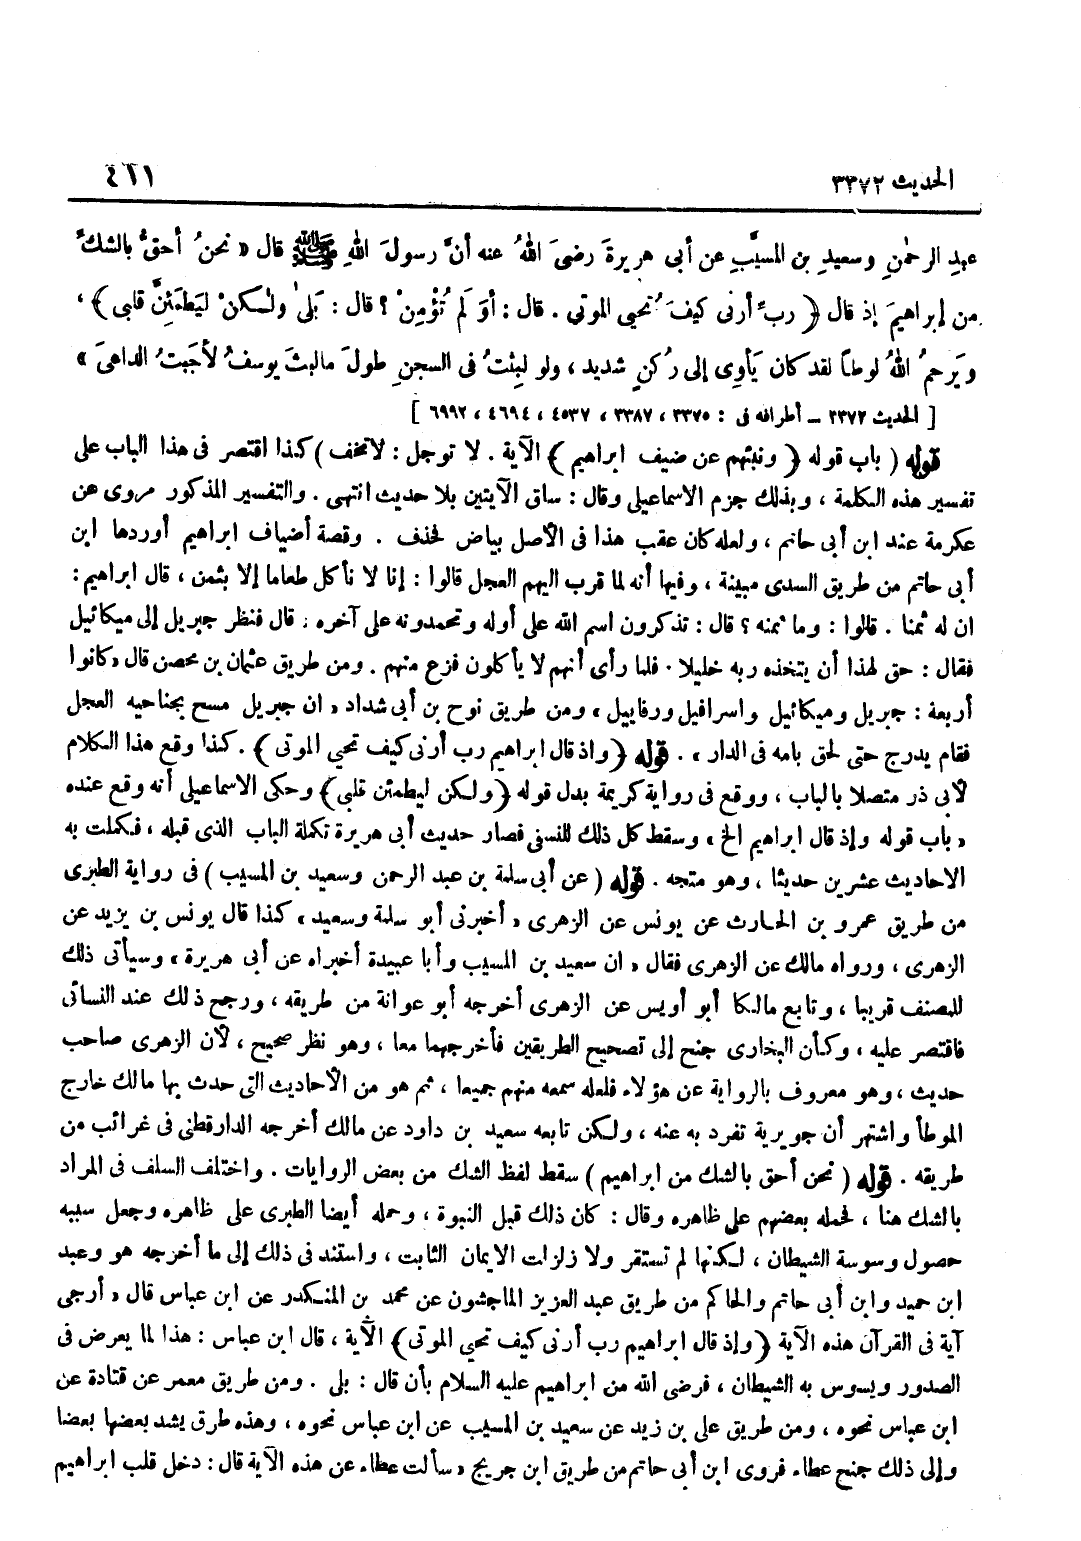 الحديث ٣٣٧٢
٤١١
عبدِ الرحمٰنِ وسعيدِ بنِ المسيَّبِ عن أبى هريرةَ رضىَ اللهُ عنه أنَّ رسولَ اللهِ ﷺ قال « نحنُ أحقُّ بالشكِّ
من إبراهيمَ إذ قال ﴿ ربِّ أرنى كيفَ تُحيي الموتي . قال : أوَ لم تُؤْمِنْ ؟ قال : بَلىٰ ولٰـكنْ لِيَطمَئنَّ قلبى ﴾ ،
ويَرحمُ اللهُ لوطاً لقد كان يَأوِى إلى رُكنٍ شديد ، ولو لبِثتُ فى السجنِ طولَ مالبثَ يوسفُ لأجَبتُ الداعىَ »
[ الحديث ٣٣٧٢ ــ أطرافه فى : ٣٣٧٥ ، ٣٣٨٧ ، ٤٥٣٧ ، ٤٦٩٤ ، ٦٩٩٢ ]
قوله ( باب قوله ﴿ ونبئهم عن ضيف ابراهيم ﴾ الآية . لا توجل : لا تخف ) كذا اقتصر فى هذا الباب على
تفسير هذه الكلمة ، وبذلك جزم الاسماعيلى وقال : ساق الآيتين بلا حديث انتهى . والتفسير المذكور مروى عن
عكرمة عند ابن أبى حاتم ، ولعله كان عقب هذا فى الأصل بياض فحذف . وقصة أضياف ابراهيم أوردها ابن
أبى حاتم من طريق السدى مبينة ، وفيها أنه لما قرب اليهم العجل قالوا : إنا لا نأكل طعاما إلا بثمن ، قال ابراهيم :
ان له ثمنا . قالوا : وما ثمنه ؟ قال : تذكرون اسم الله على أوله وتحمدونه على آخره . قال فنظر جبريل إلى ميكائيل
فقال : حق لهذا أن يتخذه ربه خليلا . فلما رأى أنهم لا يأكلون فزع منهم . ومن طريق عثمان بن محصن قال «كانوا
أربعة : جبريل وميكائيل واسرافيل ورفاييل » ومن طريق نوح بن أبى شداد « ان جبريل مسح بجناحيه العجل
فقام يدرج حتى لحق بامه فى الدار » . قوله ﴿ واذ قال ابراهيم رب أرنى كيف تحيي الموتى ﴾ . كذا وقع هذا الكلام
لأبى ذر متصلا بالباب ، ووقع فى رواية كريمة بدل قوله ﴿ ولكن ليطمئن قلبى ﴾ وحكى الاسماعيلى أنه وقع عنده
« باب قوله وإذ قال ابراهيم الخ » وسقط كل ذلك للنسفى فصار حديث أبى هريرة تكملة الباب الذى قبله ، فكملت به
الاحاديث عشرين حديثا ، وهو متجه . قوله ( عن أبى سلمة بن عبد الرحمن وسعيد بن المسيب ) فى رواية الطبرى
من طريق عمرو بن الحارث عن يونس عن الزهرى « أخبرنى أبو سلمة وسعيد » كذا قال يونس بن يزيد عن
الزهرى ، ورواه مالك عن الزهرى فقال « ان سعيد بن المسيب وأبا عبيدة أخبراه عن أبى هريرة » وسيأتى ذلك
للمصنف قريبا ، وتابع مالكا أبو أويس عن الزهرى أخرجه أبو عوانة من طريقه ، ورجح ذلك عند النسائى
فاقتصر عليه ، وكأن البخارى جنح إلى تصحيح الطريقين فأخرجهما معا ، وهو نظر صحيح ، لأن الزهرى صاحب
حديث ، وهو معروف بالرواية عن هؤلاء فلعله سمعه منهم جميعا ، ثم هو من الأحاديث التى حدث بها مالك خارج
الموطأ واشتهر أن جويرية تفرد به عنه ، ولكن تابعه سعيد بن داود عن مالك أخرجه الدارقطنى فى غرائب من
طريقه . قوله ( نحن أحق بالشك من ابراهيم ) سقط لفظ الشك من بعض الروايات . واختلف السلف فى المراد
بالشك هنا ، فحمله بعضهم على ظاهره وقال : كان ذلك قبل النبوة ، وحمله أيضا الطبرى على ظاهره وجعل سببه
حصول وسوسة الشيطان ، لكنها لم تستقر ولا زلزلت الايمان الثابت ، واستند فى ذلك إلى ما أخرجه هو وعبد
ابن حميد وابن أبى حاتم والحاكم من طريق عبد العزيز الماجشون عن محمد بن المنكدر عن ابن عباس قال « أرجى
آية فى القرآن هذه الآية ﴿ وإذ قال ابراهيم رب أرنى كيف تحيي الموتى ﴾ الآية ، قال ابن عباس : هذا لما يعرض فى
الصدور ويسوس به الشيطان ، فرضى الله من ابراهيم عليه السلام بأن قال : بلى . ومن طريق معمر عن قتادة عن
ابن عباس نحوه ، ومن طريق على بن زيد عن سعيد بن المسيب عن ابن عباس نحوه ، وهذه طرق يشد بعضها بعضا
وإلى ذلك جنح عطاء فروى ابن أبى حاتم من طريق ابن جريج « سألت عطاء عن هذه الآية قال : دخل قلب ابراهيم